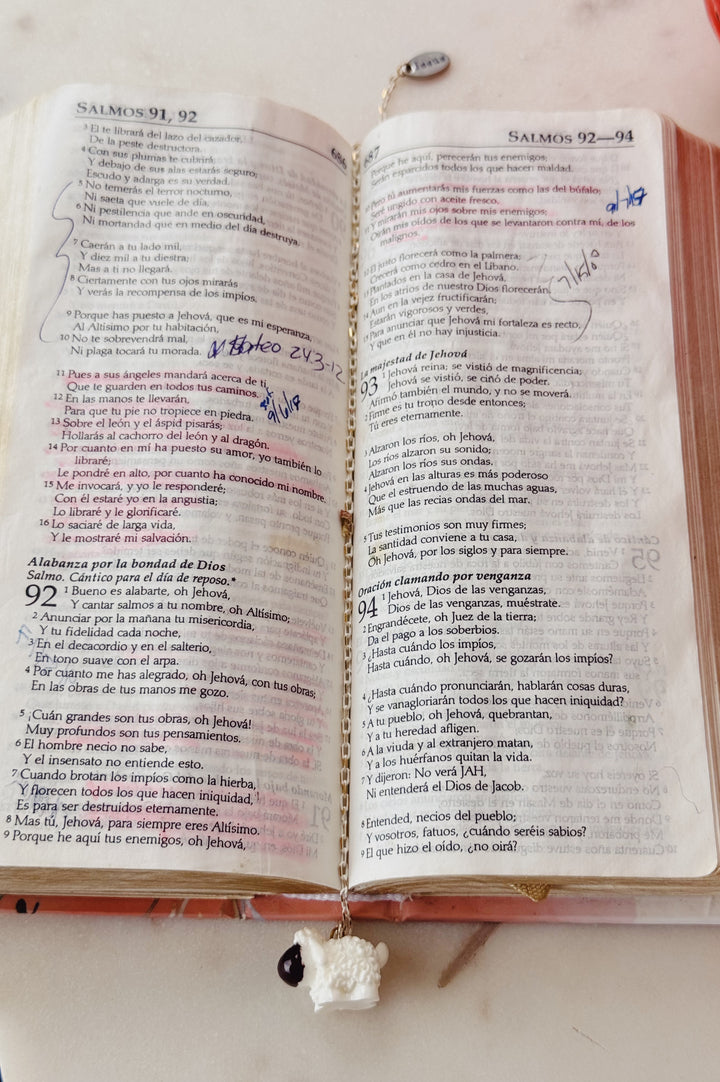 SALMOS 91, 92
686
3 El te librará del lazo del cazador,
De la peste destructora.
4 Con sus plumas te cubrirá,
Y debajo de sus alas estarás seguro;
Escudo y adarga es su verdad.
5 No temerás el terror nocturno,
Ni saeta que vuele de día,
6 Ni pestilencia que ande en oscuridad,
Ni mortandad que en medio del día destruya.
7 Caerán a tu lado mil,
Y diez mil a tu diestra;
Mas a ti no llegará.
8 Ciertamente con tus ojos mirarás
Y verás la recompensa de los impíos.
9 Porque has puesto a Jehová, que es mi esperanza,
Al Altísimo por tu habitación,
10 No te sobrevendrá mal,
Ni plaga tocará tu morada.
Mateo 24:3-12
11 Pues a sus ángeles mandará acerca de ti,
Que te guarden en todos tus caminos.
12 En las manos te llevarán,
Para que tu pie no tropiece en piedra.
13 Sobre el león y el áspid pisarás;
Hollarás al cachorro del león y al dragón.
14 Por cuanto en mí ha puesto su amor, yo también lo
libraré;
Le pondré en alto, por cuanto ha conocido mi nombre.
15 Me invocará, y yo le responderé;
Con él estaré yo en la angustia;
Lo libraré y le glorificaré.
16 Lo saciaré de larga vida,
Y le mostraré mi salvación.
Alabanza por la bondad de Dios
Salmo. Cántico para el día de reposo.*
92 1 Bueno es alabarte, oh Jehová,
Y cantar salmos a tu nombre, oh Altísimo;
2 Anunciar por la mañana tu misericordia,
Y tu fidelidad cada noche,
3 En el decacordio y en el salterio,
En tono suave con el arpa.
4 Por cuanto me has alegrado, oh Jehová, con tus obras;
En las obras de tus manos me gozo.
5 ¡Cuán grandes son tus obras, oh Jehová!
Muy profundos son tus pensamientos.
6 El hombre necio no sabe,
Y el insensato no entiende esto.
7 Cuando brotan los impíos como la hierba,
Y florecen todos los que hacen iniquidad,
Es para ser destruidos eternamente.
8 Mas tú, Jehová, para siempre eres Altísimo.
9 Porque he aquí tus enemigos, oh Jehová,
687
SALMOS 92—94
Porque he aquí, perecerán tus enemigos;
Serán esparcidos todos los que hacen maldad.
Pero tú aumentarás mis fuerzas como las del búfalo;
Seré ungido con aceite fresco.
Y mirarán mis ojos sobre mis enemigos;
Oirán mis oídos de los que se levantaron contra mí, de los
malignos.
12 El justo florecerá como la palmera;
Crecerá como cedro en el Líbano.
Plantados en la casa de Jehová,
En los atrios de nuestro Dios florecerán.
14 Aun en la vejez fructificarán;
Estarán vigorosos y verdes,
15 Para anunciar que Jehová mi fortaleza es recto,
Y que en él no hay injusticia.
La majestad de Jehová
93 1 Jehová reina; se vistió de magnificencia;
Jehová se vistió, se ciñó de poder.
Afirmó también el mundo, y no se moverá.
2 Firme es tu trono desde entonces;
Tú eres eternamente.
3 Alzaron los ríos, oh Jehová,
Los ríos alzaron su sonido;
Alzaron los ríos sus ondas.
4 Jehová en las alturas es más poderoso
Que el estruendo de las muchas aguas,
Más que las recias ondas del mar.
5 Tus testimonios son muy firmes;
La santidad conviene a tu casa,
Oh Jehová, por los siglos y para siempre.
Oración clamando por venganza
94 1 Jehová, Dios de las venganzas,
Dios de las venganzas, muéstrate.
2 Engrandécete, oh Juez de la tierra;
Da el pago a los soberbios.
3 ¿Hasta cuándo los impíos,
Hasta cuándo, oh Jehová, se gozarán los impíos?
4 ¿Hasta cuándo pronunciarán, hablarán cosas duras,
Y se vanagloriarán todos los que hacen iniquidad?
5 A tu pueblo, oh Jehová, quebrantan,
Y a tu heredad afligen.
6 A la viuda y al extranjero matan,
Y a los huérfanos quitan la vida.
7 Y dijeron: No verá JAH,
Ni entenderá el Dios de Jacob.
8 Entended, necios del pueblo;
Y vosotros, fatuos, ¿cuándo seréis sabios?
9 El que hizo el oído, ¿no oirá?